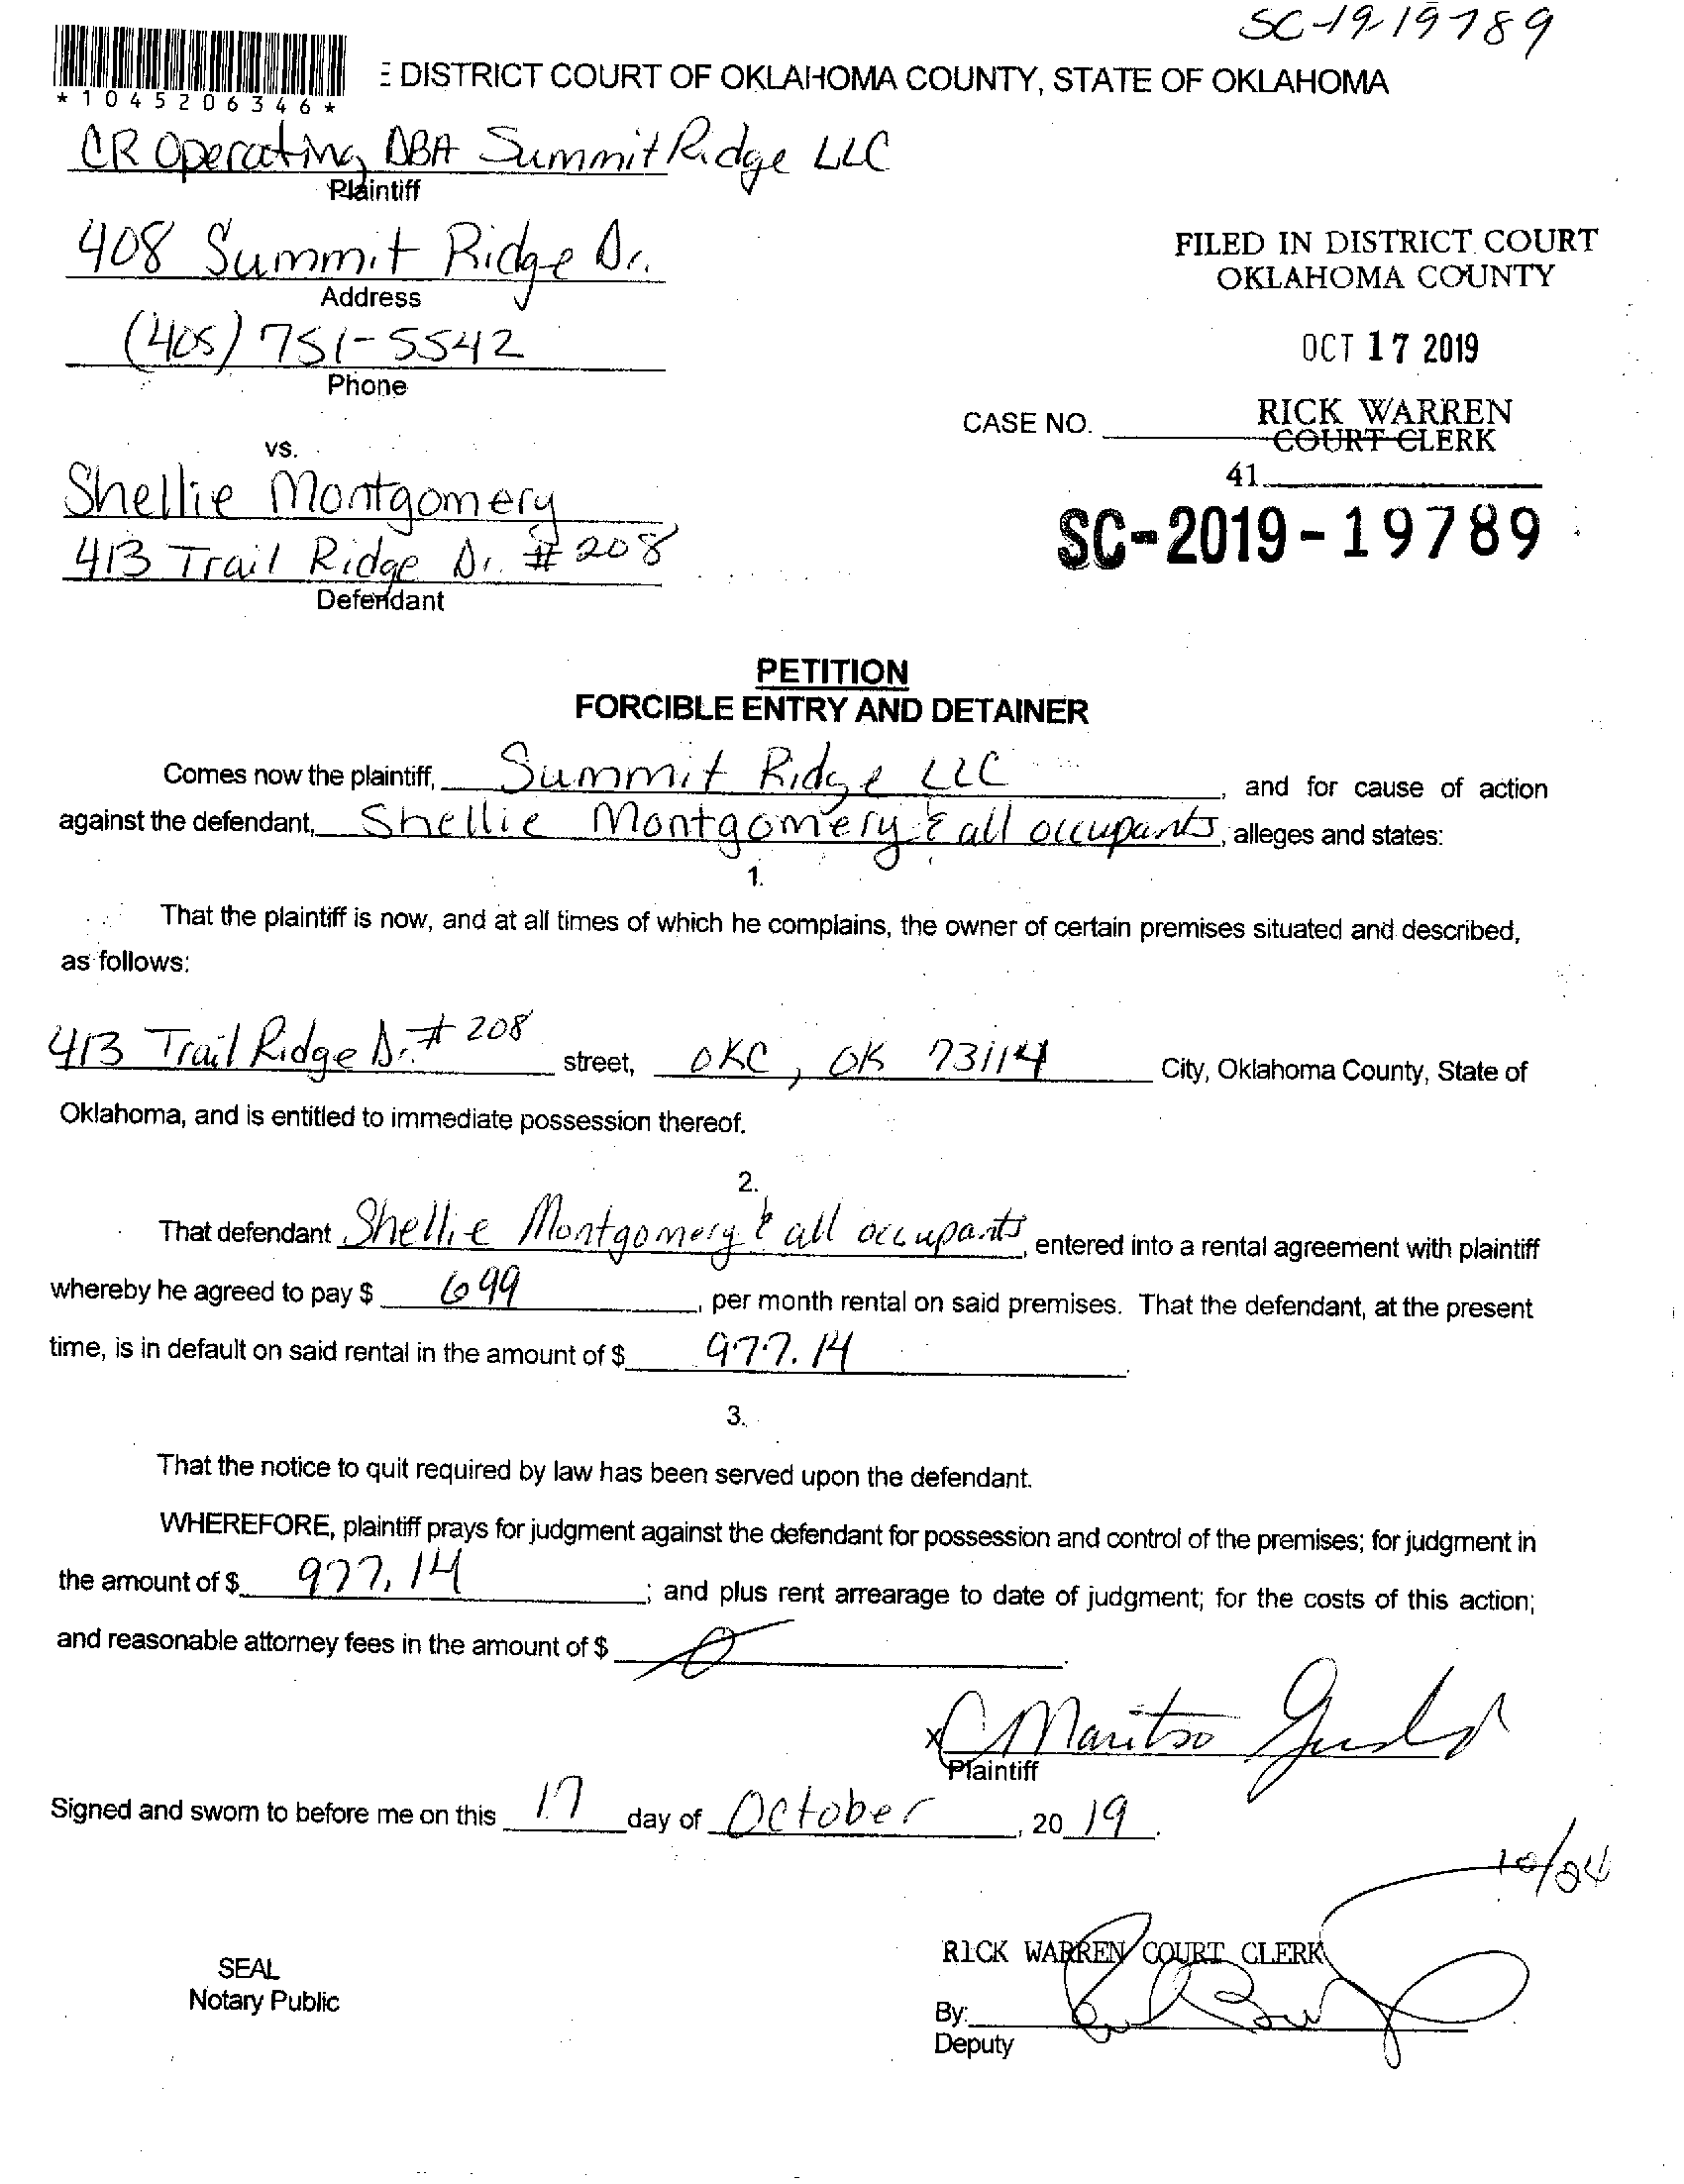 SC-19-19789
*1045206346*
E DISTRICT COURT OF OKLAHOMA COUNTY, STATE OF OKLAHOMA
CR Operating DBA Summit Ridge LLC
Plaintiff
408 Summit Ridge Dr.
Address
(405) 751-5542
Phone
FILED IN DISTRICT COURT
OKLAHOMA COUNTY
OCT 17 2019
RICK WARREN
COURT CLERK
CASE NO.
41
SC-2019-19789
vs.
Shellie Montgomery
413 Trail Ridge Dr. #208
Defendant
PETITION
FORCIBLE ENTRY AND DETAINER
Comes now the plaintiff, Summit Ridge LLC, and for cause of action
against the defendant, Shellie Montgomery & all occupants, alleges and states:
1.
That the plaintiff is now, and at all times of which he complains, the owner of certain premises situated and described,
as follows:
413 Trail Ridge Dr. # 208 street, OKC, OK 73114 City, Oklahoma County, State of
Oklahoma, and is entitled to immediate possession thereof.
2.
That defendant Shellie Montgomery & all occupants, entered into a rental agreement with plaintiff
whereby he agreed to pay $ 699, per month rental on said premises. That the defendant, at the present
time, is in default on said rental in the amount of $ 977.14.
3.
That the notice to quit required by law has been served upon the defendant.
WHEREFORE, plaintiff prays for judgment against the defendant for possession and control of the premises; for judgment in
the amount of $ 977.14; and plus rent arrearage to date of judgment; for the costs of this action;
and reasonable attorney fees in the amount of $ 0.
x Maritso
Plaintiff
Signed and sworn to before me on this 17 day of October, 2019.
10/24
RICK WARREN COURT CLERK
SEAL
Notary Public
By:
Deputy